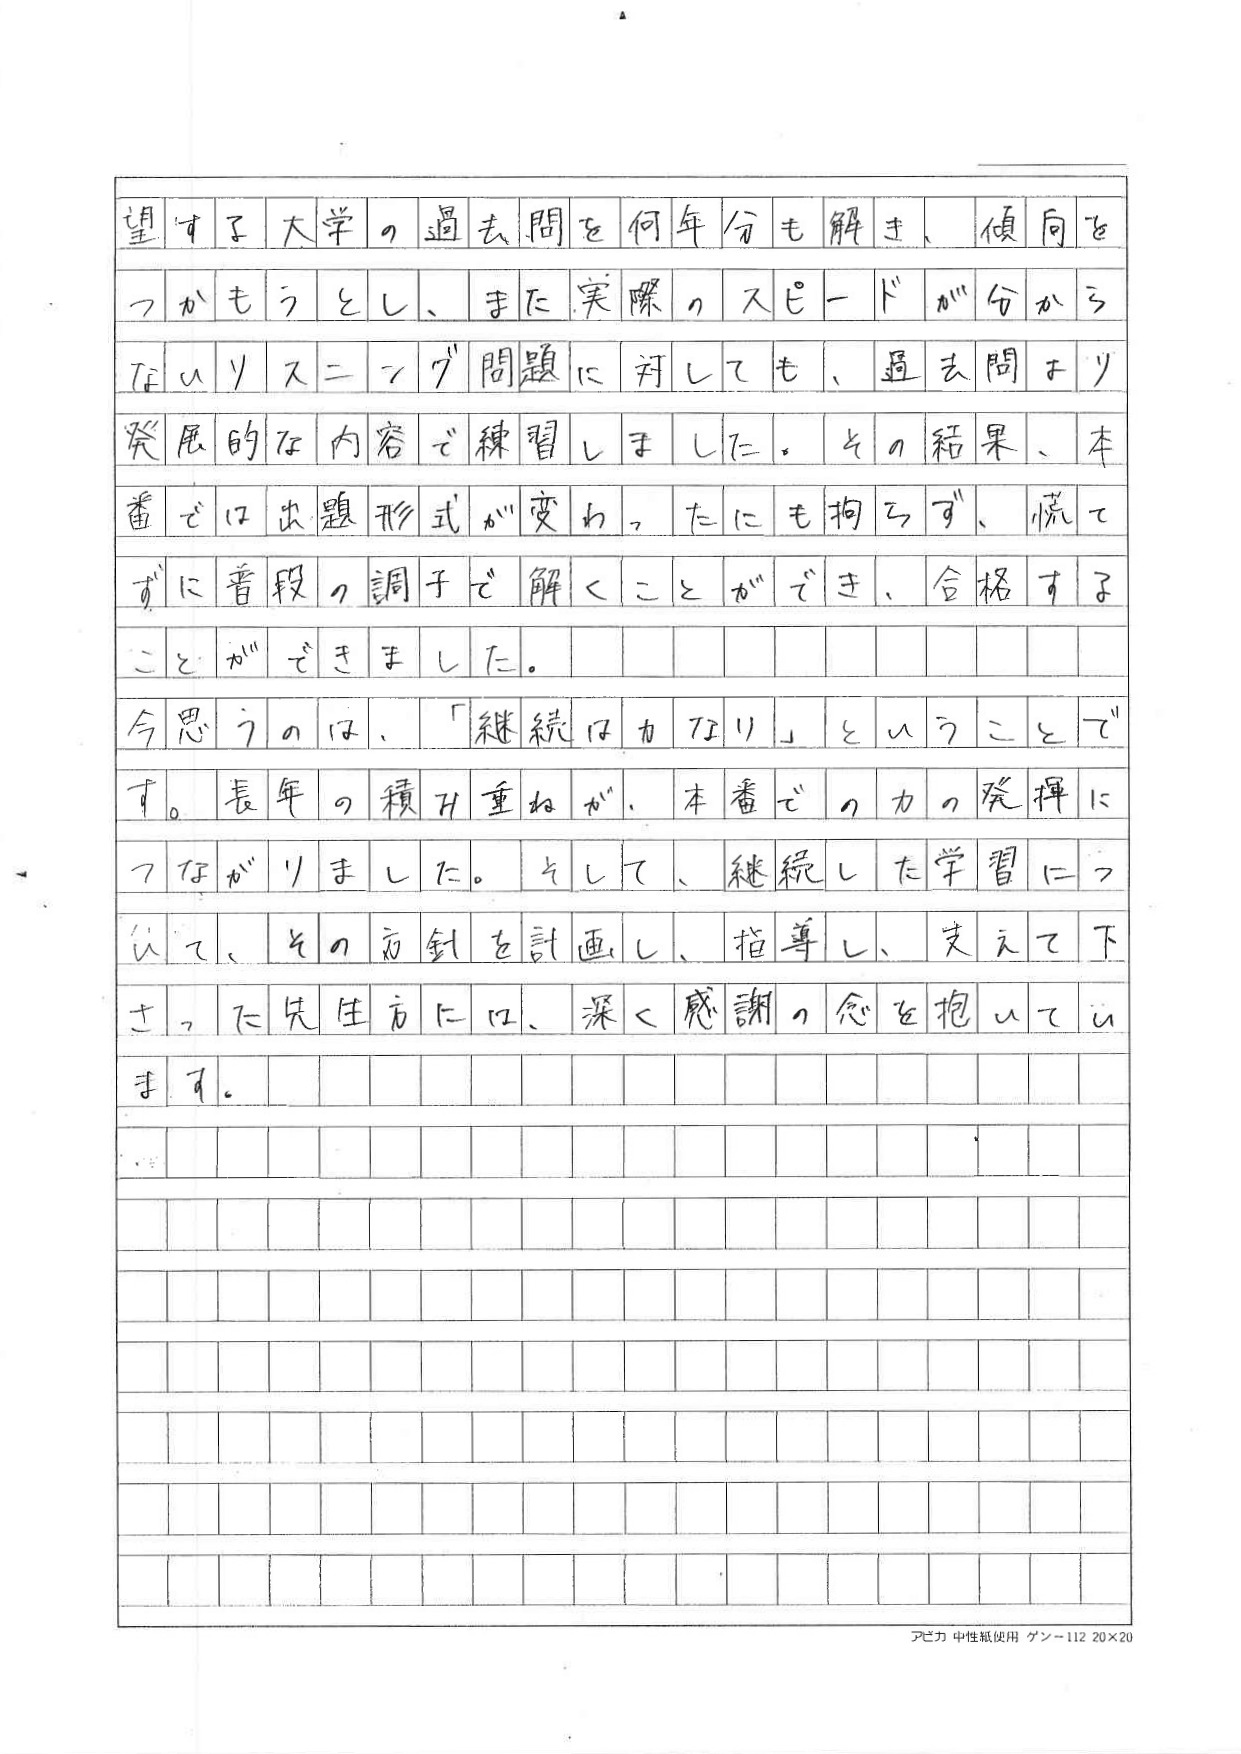 望する大学の過去問を何年分も解き、傾向を
つかもうとし、また実際のスピードが分から
ないリスニング問題に対しても、過去問より
発展的な内容で練習しました。その結果、本
番では出題形式が変わったにも拘らず、慌て
ずに普段の調子で解くことができ、合格する
ことができました。
今思うのは、「継続は力なり」ということで
す。長年の積み重ねが、本番での力の発揮に
つながりました。そして、継続した学習につ
いて、その方針を計画し、指導し、支えて下
さった先生方には、深く感謝の念を抱いてい
ます。
アピカ 中性紙使用 ゲンー112 20×20